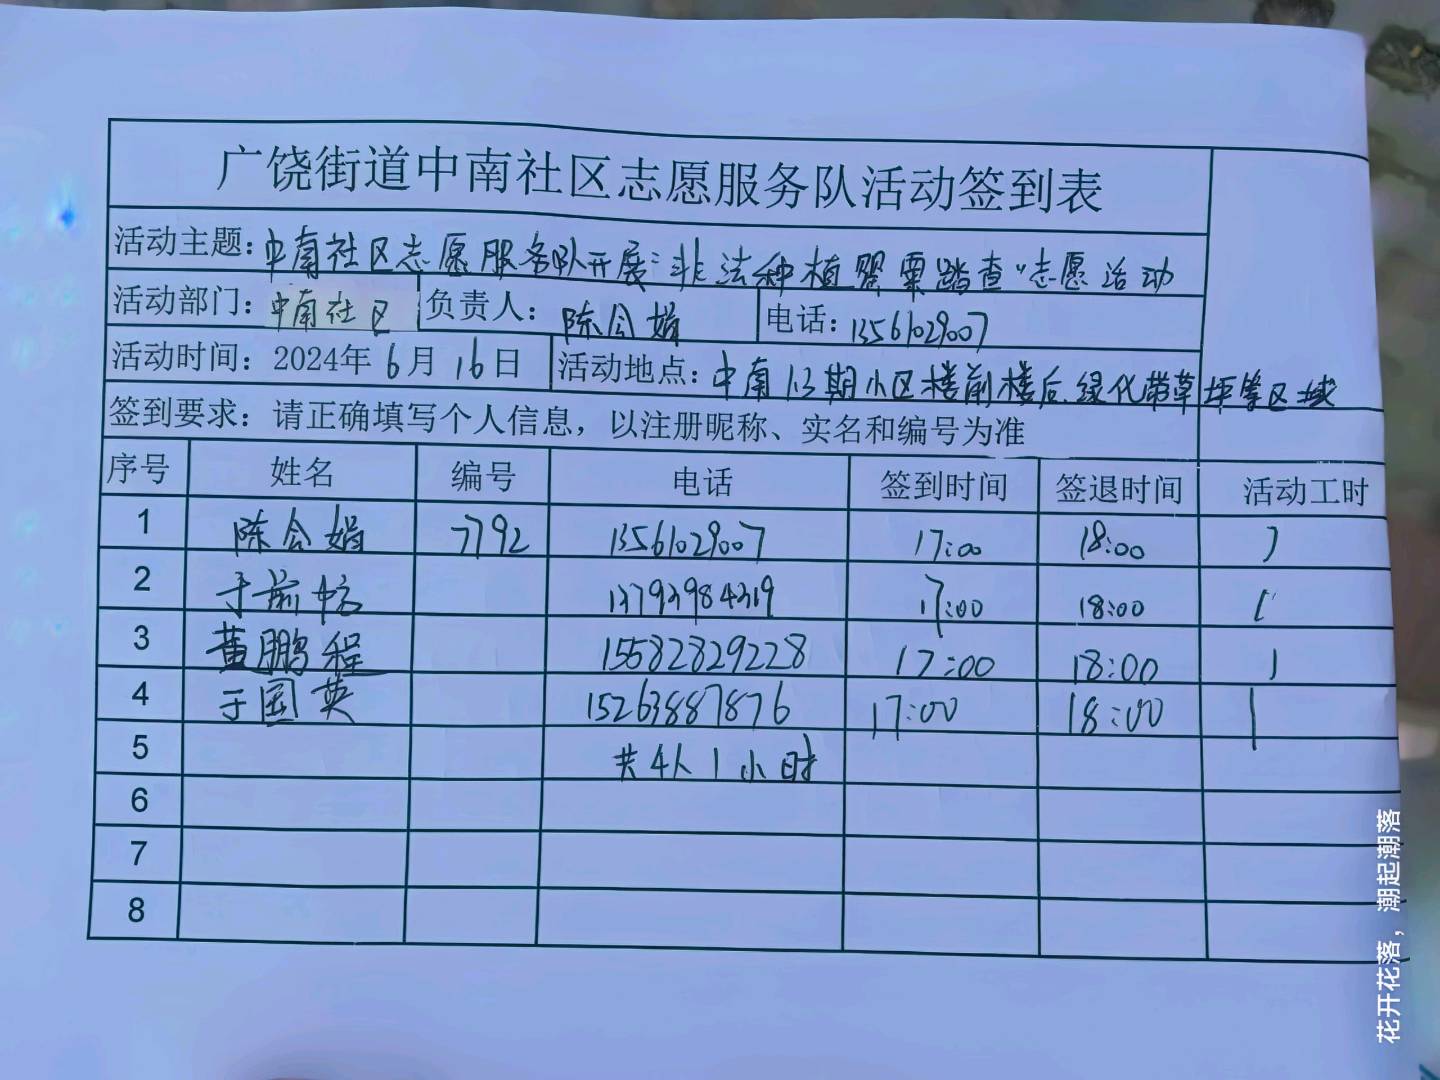 广饶街道中南社区志愿服务队活动签到表
活动主题：中南社区志愿服务队开展"非法种植罂粟踏查"志愿活动
活动部门：中南社区 负责人：陈会娟 电话：13561029007
活动时间：2024年6月16日 活动地点：中南1.3期小区楼前楼后.绿化带草坪等区域
签到要求：请正确填写个人信息，以注册昵称、实名和编号为准
序号 姓名 编号 电话 签到时间 签退时间 活动工时
1 陈会娟 7792 13561029007 17:00 18:00 1
2 于前 13793984319 17:00 18:00 1
3 黄鹏程 15582829228 17:00 18:00 1
4 于国英 15263887876 17:00 18:00 1
5 共4人1小时
6
7
8
花开花落，潮起潮落